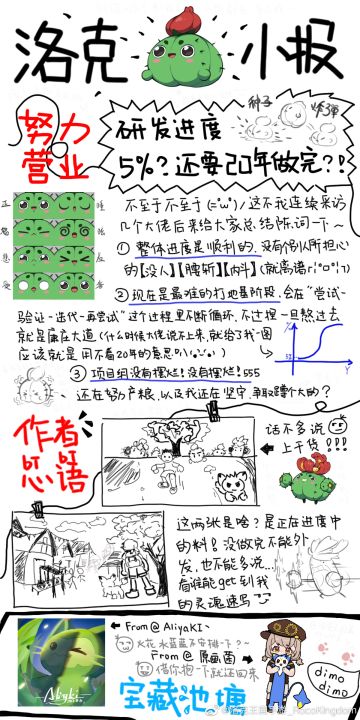 洛克小报
努力营业
种子
炸弹
研发进度
5%?还要20年做完?!
正
怒
悲
不至于不至于(=´ω`)/这不我连续采访
几个大佬后来给大家总结陈词一下~
① 整体进度是顺利的,没有别人所担心
的【没人】【脾斩】【内斗】(就离谱
② 现在是最难的打地基阶段,会在“尝试-
验证-迭代-再尝试”这个过程里不断循环,不过捏一旦熬过去
就是康庄大道(什么时候大佬说不上来,就给了我一图
应该就是用不着20年的意思
③ 项目组没有摆烂!没有摆烂!555
还在努力产粮,以及我还在坚守,争取蹲个大的?
作者的话
话不多说
上干货!!!
这两张是啥?是正在进度中
的料!没做完不能外
发,也不能多说...
看谁能get到我
的灵魂速写
From@AliyaKI-
火花水蓝蓝不安排一下?~
From@原画菌
借你抱一下就还回来
宝藏池塘
Aliyki
dimo
dimo